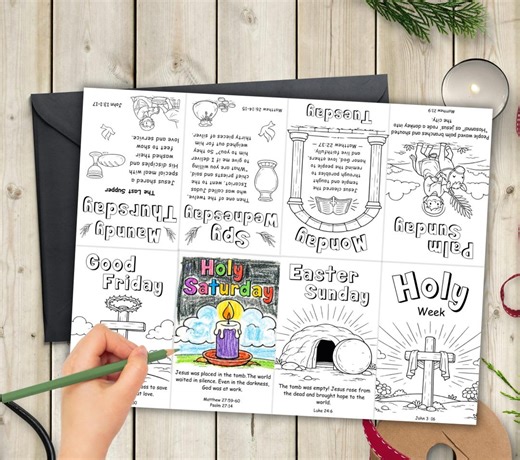 Palm
Sunday
People waved palm branches and shouted
"Hosanna!" as Jesus rode a donkey into
the city.
Matthew 21:9
Monday
Jesus cleansed the
temple taught
through parables
to remind the people
honor, love God,
and live faithfully
Matthew 22:37
Tuesday
Spy
Wednesday
Then one of the twelve,
who was called Judas
Iscariot, went to the
chief priests and said,
"What are you willing
to give me if I deliver
him to you?" So they
weighed out for him
thirty pieces of silver.
Matthew 26:14-15
Maundy
Thursday
The Last Supper
Jesus shared a
special meal with
His disciples and
washed their
feet to show
love and service.
John 13:1-17
Good
Friday
to save
love.
Holy
Saturday
Jesus was placed in the tomb.The world
waited in silence. Even in the darkness,
God was at work.
Matthew 27:59-60
Psalm 27:14
Easter
Sunday
The tomb was empty! Jesus rose from
the dead and brought hope to the
world.
Luke 24:6
Holy
Week
John 3 :16